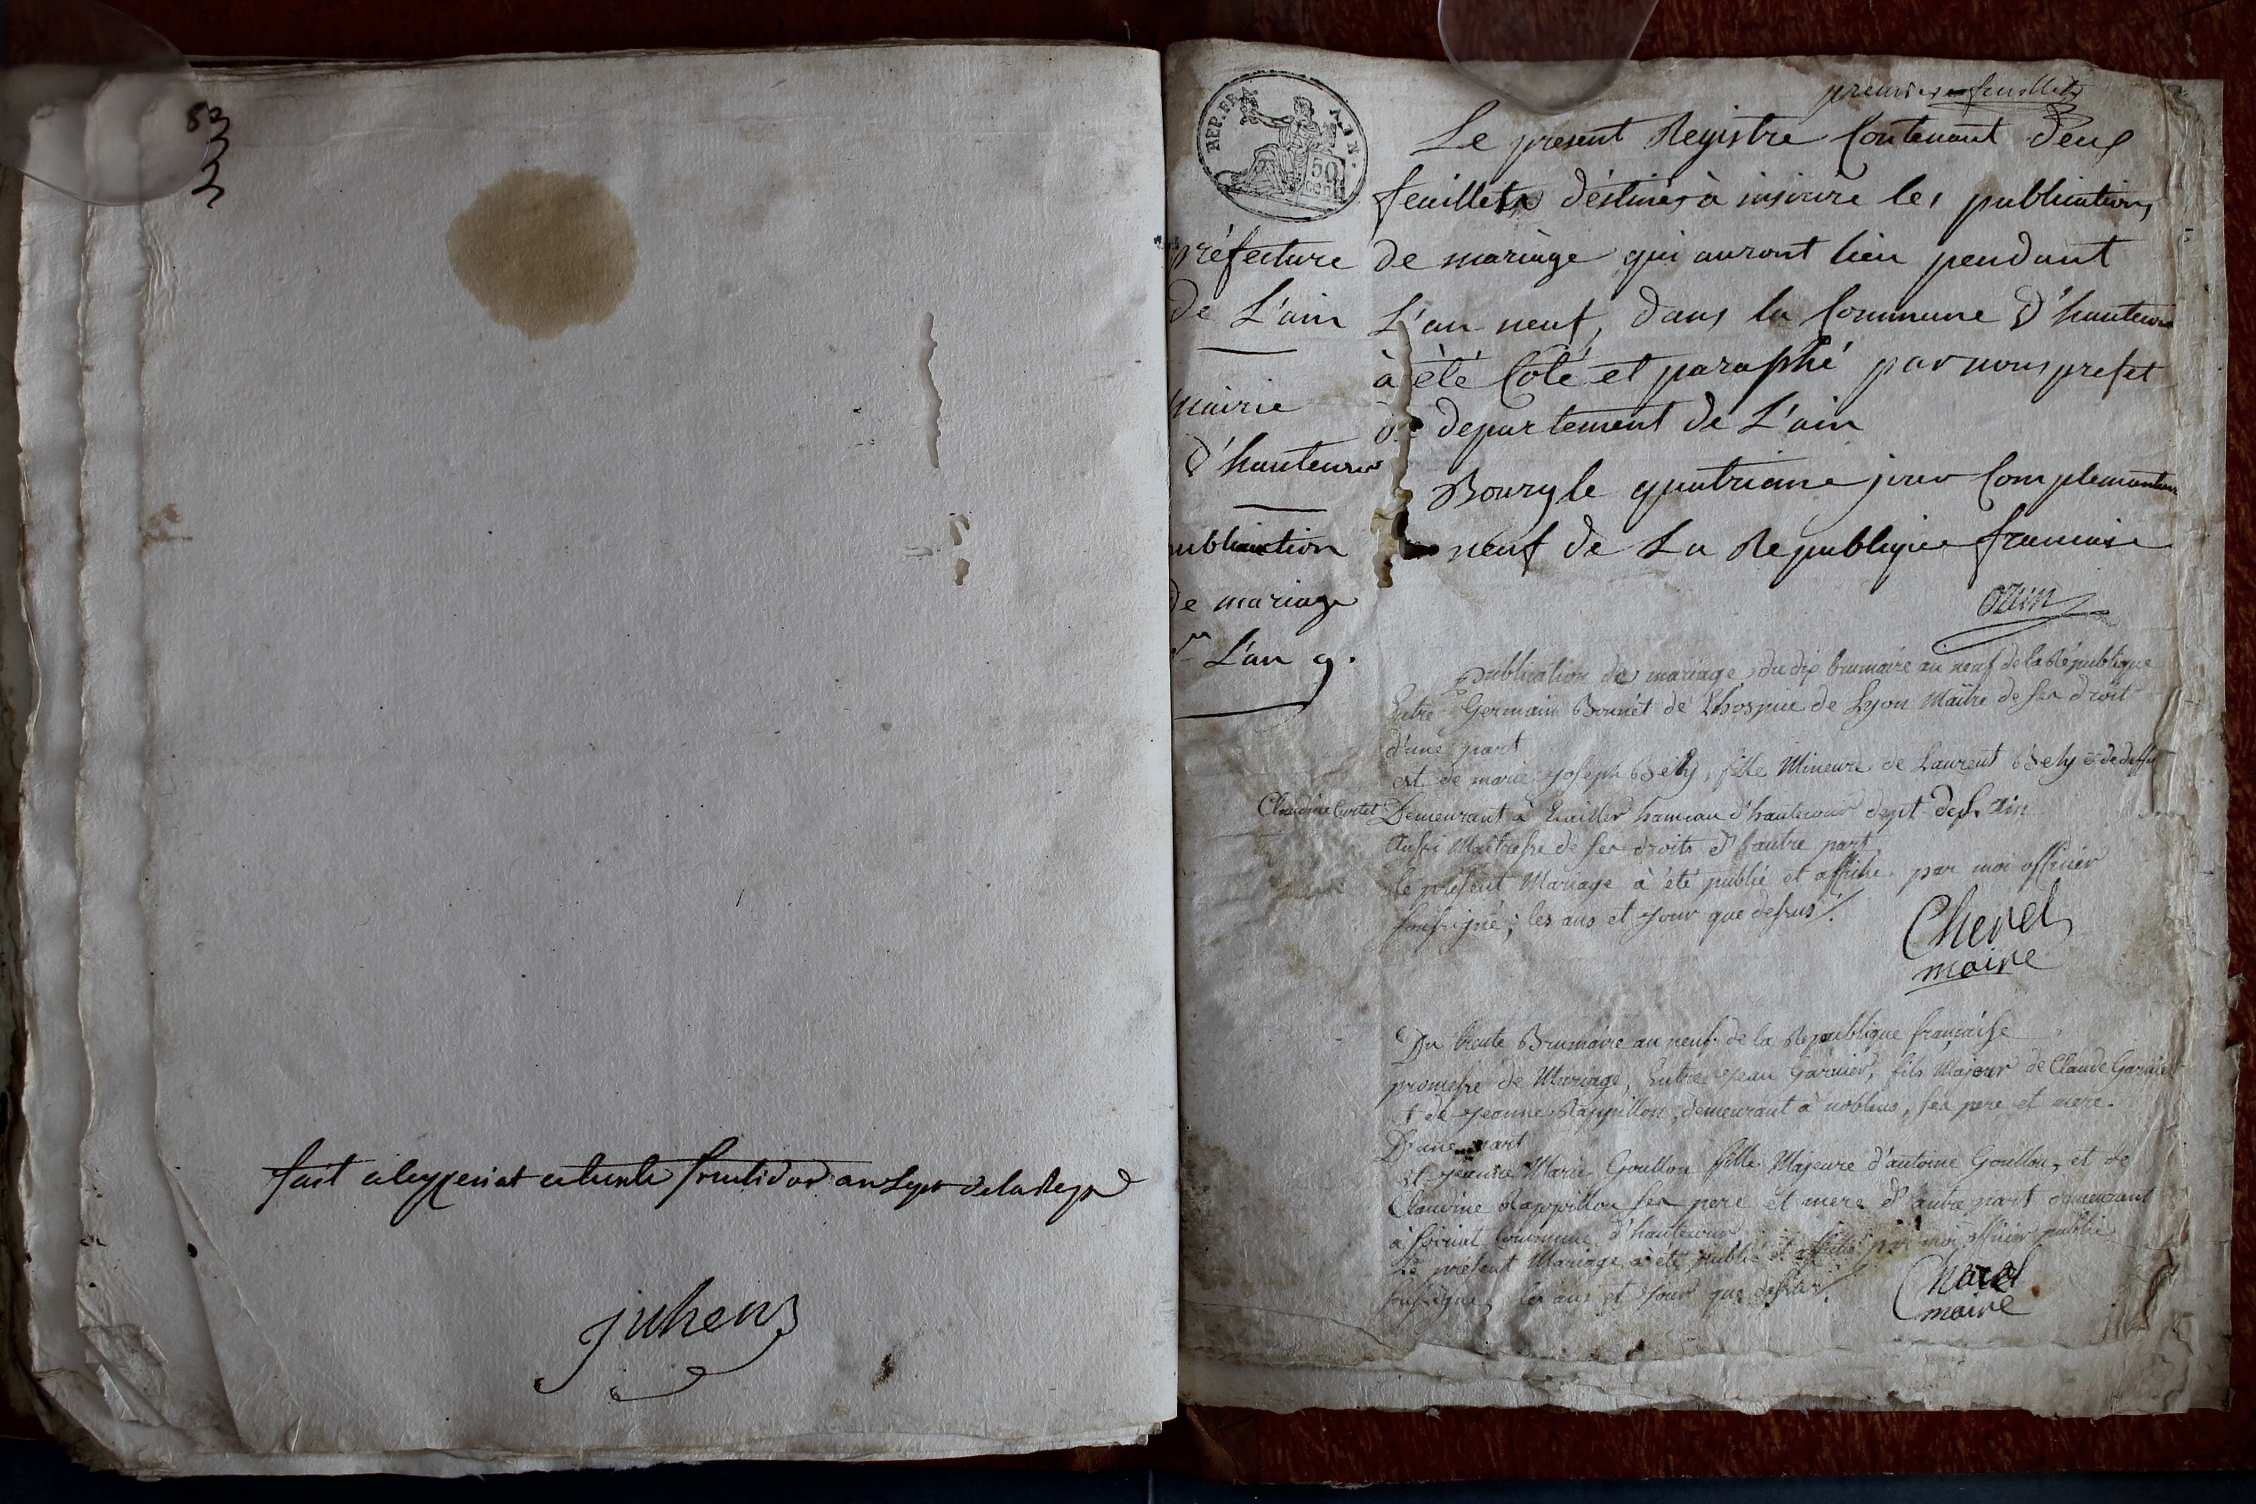 fait a ceyzeriat ce trente fructidor an sept de la Rep
juhenz
REP. FRA
50
CEN
premier feuillet
Le présent Registre Contenant Deux
feuillets déstinés à inscrire les publications
de mariage qui auront lieu pendant
L'an neuf, dans la Commune d'hautecour
à été Coté et paraphé par nous prefet
departement de L'ain
Bourg le quatrieme jour Complementaire
neuf de La Republique francaise
ozun
préfecture
de L'ain
mairie
d'hautecour
publication
de mariage
L'an 9.
publication de mariage du dix brumaire an neuf de la République
Entre Germain Bonnét de Lhospice de Lyon Maitre de ses droit
d'une part
et de marie joseph Bély, fille Mineure de Laurent Bély & de deffu
Claudine Curtet Demeurant à hameau d'hautecour dept de L'ain
Aussi Maitresse de ses droits d'autre part
le présent Mariage à été publié et affiché par moi officier
soussigné, les ans et jour que dessus /.
Chevel
maire
Du trente Brumaire an neuf de la Republique française
promesse de Mariage, Entre Jean Garnier, fils Majeur de Claude Garnier
& de jeanne Rappillon, demeurant à noblens, ses pere et mere.
D'une part
et jeanne Marie Goullon fille Majeure d'antoine Goullon, et de
Claudine Rappillon ses pere et mere d'autre part demeurant
à Commune d'hautecour
Le présent Mariage à été publié et affiché par moi officier public
soussigné, les ans et jour que dessus /.
Chevel
maire